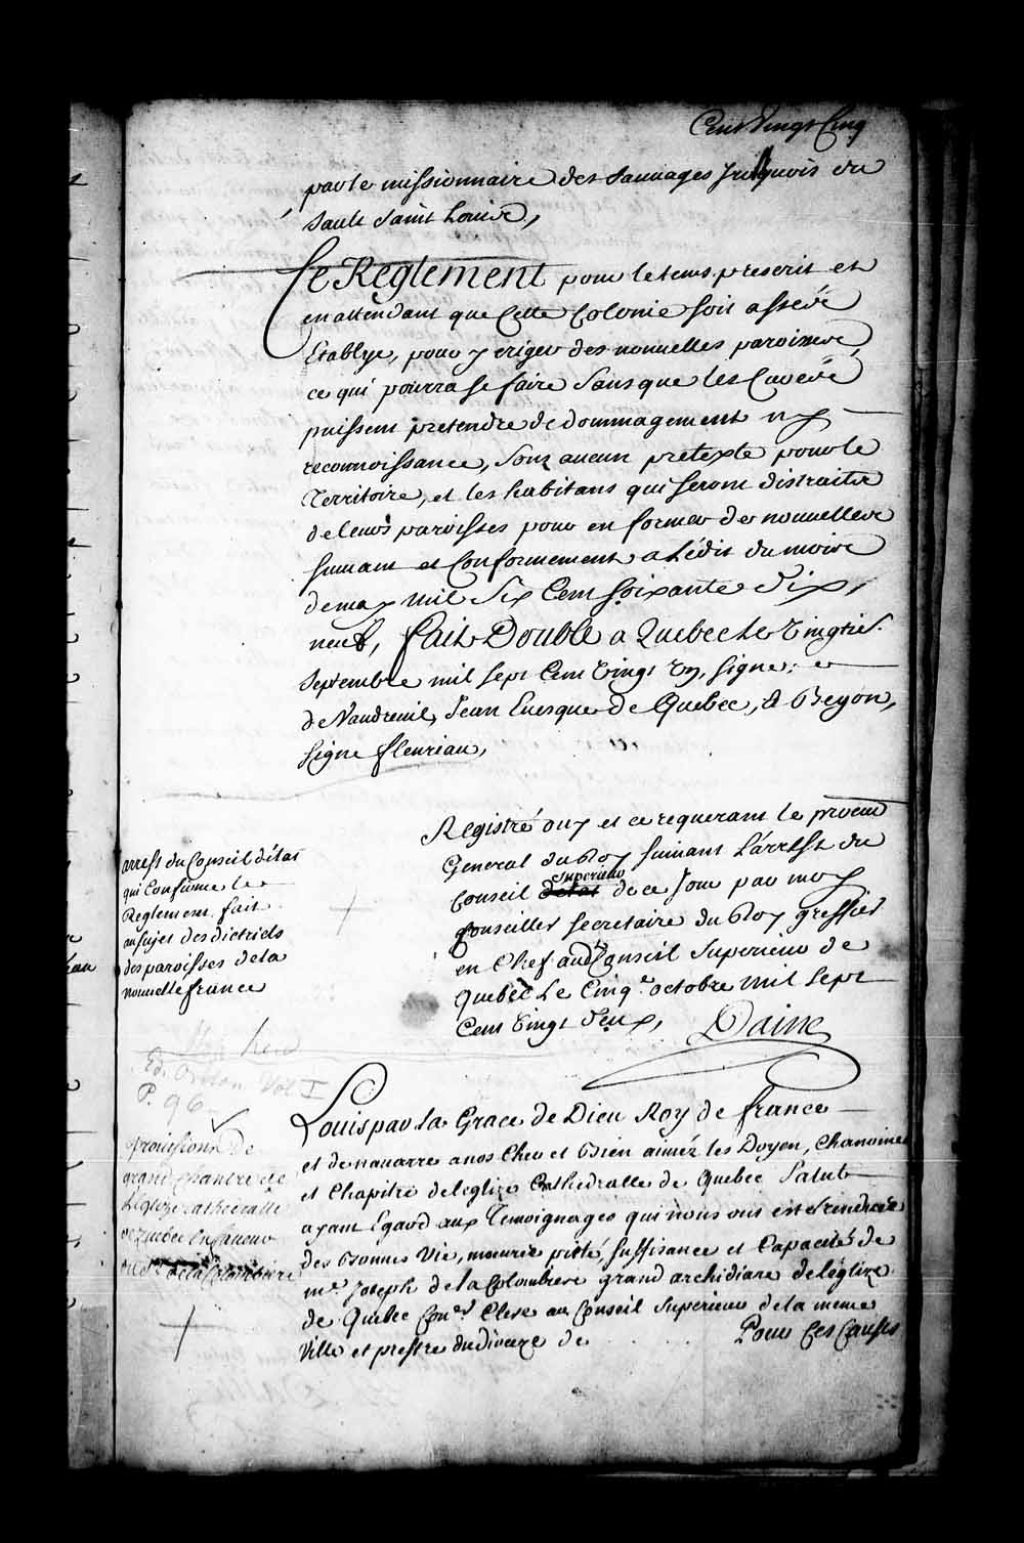 Cent Vingt Cinq
par le missionnaire des sauuages Iroquois du
sault saint Louis,
Ce Reglement pour le tems prescrit et
en attendant que Cette Colonie soit assés
Etablye, pour y eriger des nouuelles paroisses,
ce qui pourra se faire sans que les Curés
puissent pretendre de dommagement ny
reconnoissance, sous aucun pretexte pour le
Territoire, et les habitans qui seront distraits
de leurs paroisses pour en former de nouuelles
suiuant et Conformement a L'édit du mois
de may mil Six Cent soixante dix,
neuf, fait Double a Quebec le Vingtie.
septembre mil sept Cent Vingt Un, signe: et
de Vaudreuil, Jean Euesque de Quebec, & Begon,
signe fleuriau,
Registré ouy et ce requerant le procur
General du Roy suiuant L'arrest du
superieur
Conseil de ce Jour par moy
Conseiller secretaire du Roy greffier
en Chef aud Conseil superieur de
Quebec Le Cinqe. octobre mil sept
Cent Vingt deux, Daine
arrest du Conseil d'état
qui Confirme le
Reglement fait
au sujet des districts
des paroisses de la
nouuelle france
Ed. Vol I
P. 96
Louis par la Grace de Dieu Roy de france
et de nauarre a nos Cher et Bien aimez les Doyen, Chanoines
et Chapitre de leglize Cathedralle de Quebec Salut
ayant Egard aux Temoignages qui nous ont esté rendus
des bonnes Vie, meurs, pieté, suffisance et Capacité de
me. Joseph de la Colombiere grand archidiacre de leglize
de Quebec Coner. Clerc au Conseil superieur de la meme
Ville et prestre du dioceze de Pour Ces Causes
prouisions de
grand Chantre de
L'eglize cathedralle
de Quebec En faueur
de la Colombiere